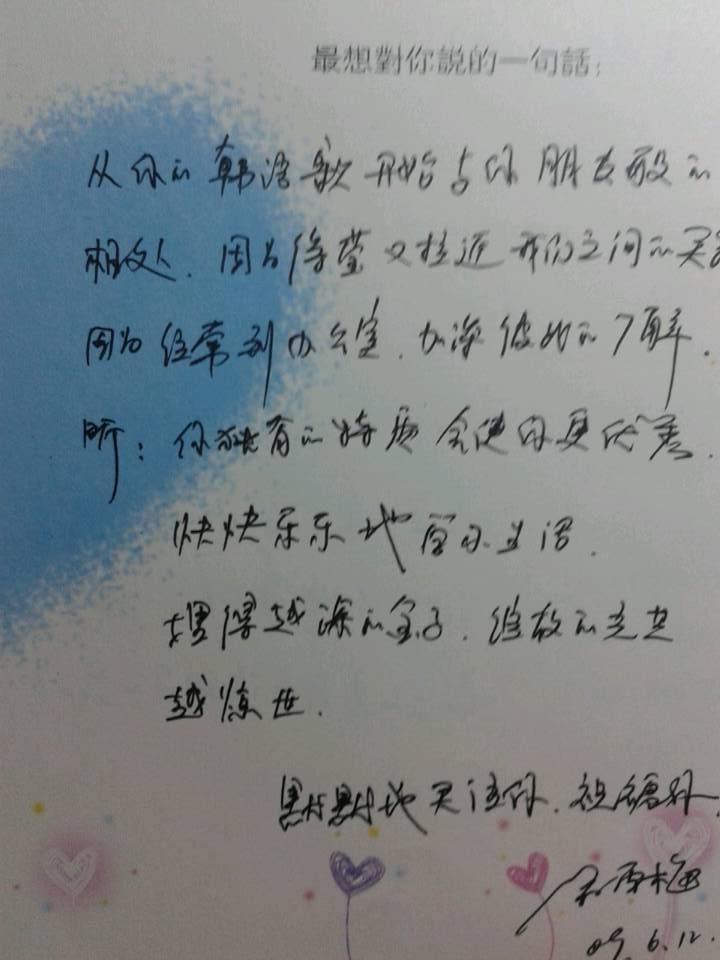 最想對你說的一句話：
从你的韩语歌开始与你朋友般的
相处．因为徐莹又拉近我们之间的关
因为经常到办公室．加深彼此的了解．
昕：你独有的特质会使你更优秀．
快快乐乐地 生活．
埋得越深的金子．绽放的光芒
越惊世．
默默地关注你．祝福你．
09. 6.12.